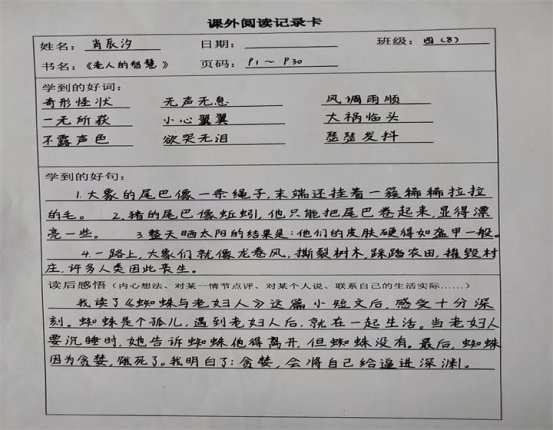 课外阅读记录卡
姓名：肖辰汐 日期： 班级：四（8）
书名：《老人的智慧》 页码：P1～P30
学到的好词：
奇形怪状 无声无息 风调雨顺
一无所获 小心翼翼 大祸临头
不露声色 欲哭无泪 瑟瑟发抖
学到的好句：
1.大象的尾巴像一条绳子,末端还挂着一簇稀稀拉拉
的毛。 2.猪的尾巴像蚯蚓,他只能把尾巴卷起来,显得漂
亮一些。 3.整天晒太阳的结果是:他们的皮肤硬得如盔甲一般。
4.一路上,大象们就像龙卷风,撕裂树木,踩踏农田,摧毁村
庄,许多人类因此丧生。
读后感悟（内心想法、对某一情节点评、对某个人说、联系自己的生活实际……）
我读了《蜘蛛与老妇人》这篇小短文后,感受十分深
刻。蜘蛛是个孤儿,遇到老妇人后,就在一起生活。当老妇人
要沉睡时,她告诉蜘蛛他得离开,但蜘蛛没有。最后,蜘蛛
因为贪婪,饿死了。我明白了:贪婪,会将自己给逼进深渊。